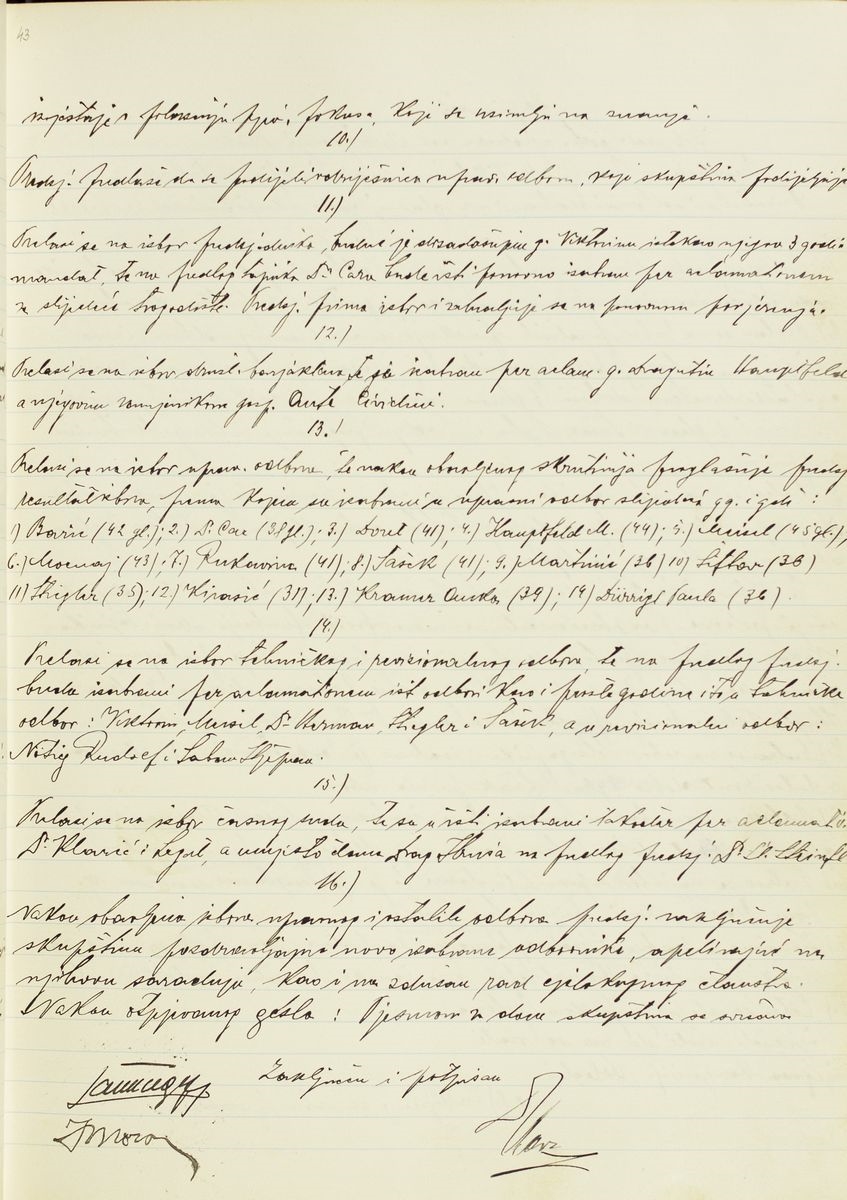 43
izvještaje o polaganju pjev. pokusa, koji se uzimlju na znanje.
10.)
Predsj. predlaže da se podijeli odriješnica uprav. odboru, koju skupština podijeljuje
11.)
Prelazi se na izbor predsjednika, budući je dosadašnjem g. Viktorinu istekao njegov 3 godiš
mandat, te na predlog tajnika Dr. Cara bude isti ponovno izabran per aclamationem
za slijedeće trogodište. Predsj. prima izbor i zahvaljuje se na ponovnom povjerenju.
12.)
Prelazi se na izbor društ. barjaktara te je izabran per aclam. g. Dragutin Hauptfeld
a njegovim zamjenikom gosp. Ante Cividini.
13.)
Prelazi se na izbor uprav. odbora, te nakon obavljenog skrutinija proglašuje predsj
rezultat izbora, prema kojem su izabrani u upravni odbor slijedeća gg. i gđe :
1) Barić (42 gl.); 2.) Dr. Car (38 gl.); 3.) Doret (41); 4.) Hauptfeld M. (44); 5.) Meisel (45 gl.),
6.) Mocnaj (43); 7.) Rukavina (41); 8.) Sašek (41); 9.) Martinić (36) 10) Siftar (36)
11) Stiegler (35); 12.) Kirasić (31); 13.) Kramer Anka (39); 14) Dürrigl Paula (36).
14.)
Prelazi se na izbor tehničkog i revizionalnog odbora, te na predlog predsj.
budu izabrani per aclamationem isti odbori kao i prošle godine i to u tehnički
odbor : Viktorin, Meisel, Dr. Herman, Stiegler i Sašek, a u revizionalni odbor :
Rudolf i Stjepan.
15.)
Prelazi se na izbor časnog suda, te su u isti izabrani također per aclamatio
Dr. Klarić i Legat, a umjesto člana Drag. na predlog predsj. Dr.
16.)
Nakon obavljenog izbora upravnog i ostalih odbora predsj. zaključuje
skupštinu pozdravljajući novo izabrane odbornike, apelirajući na
njihovu saradnju, kao i na zdušan rad cjelokupnog članstva.
Nakon otpjevanog gesla : Pjesmom za dom skupština se svršava
Zaključen i potpisan